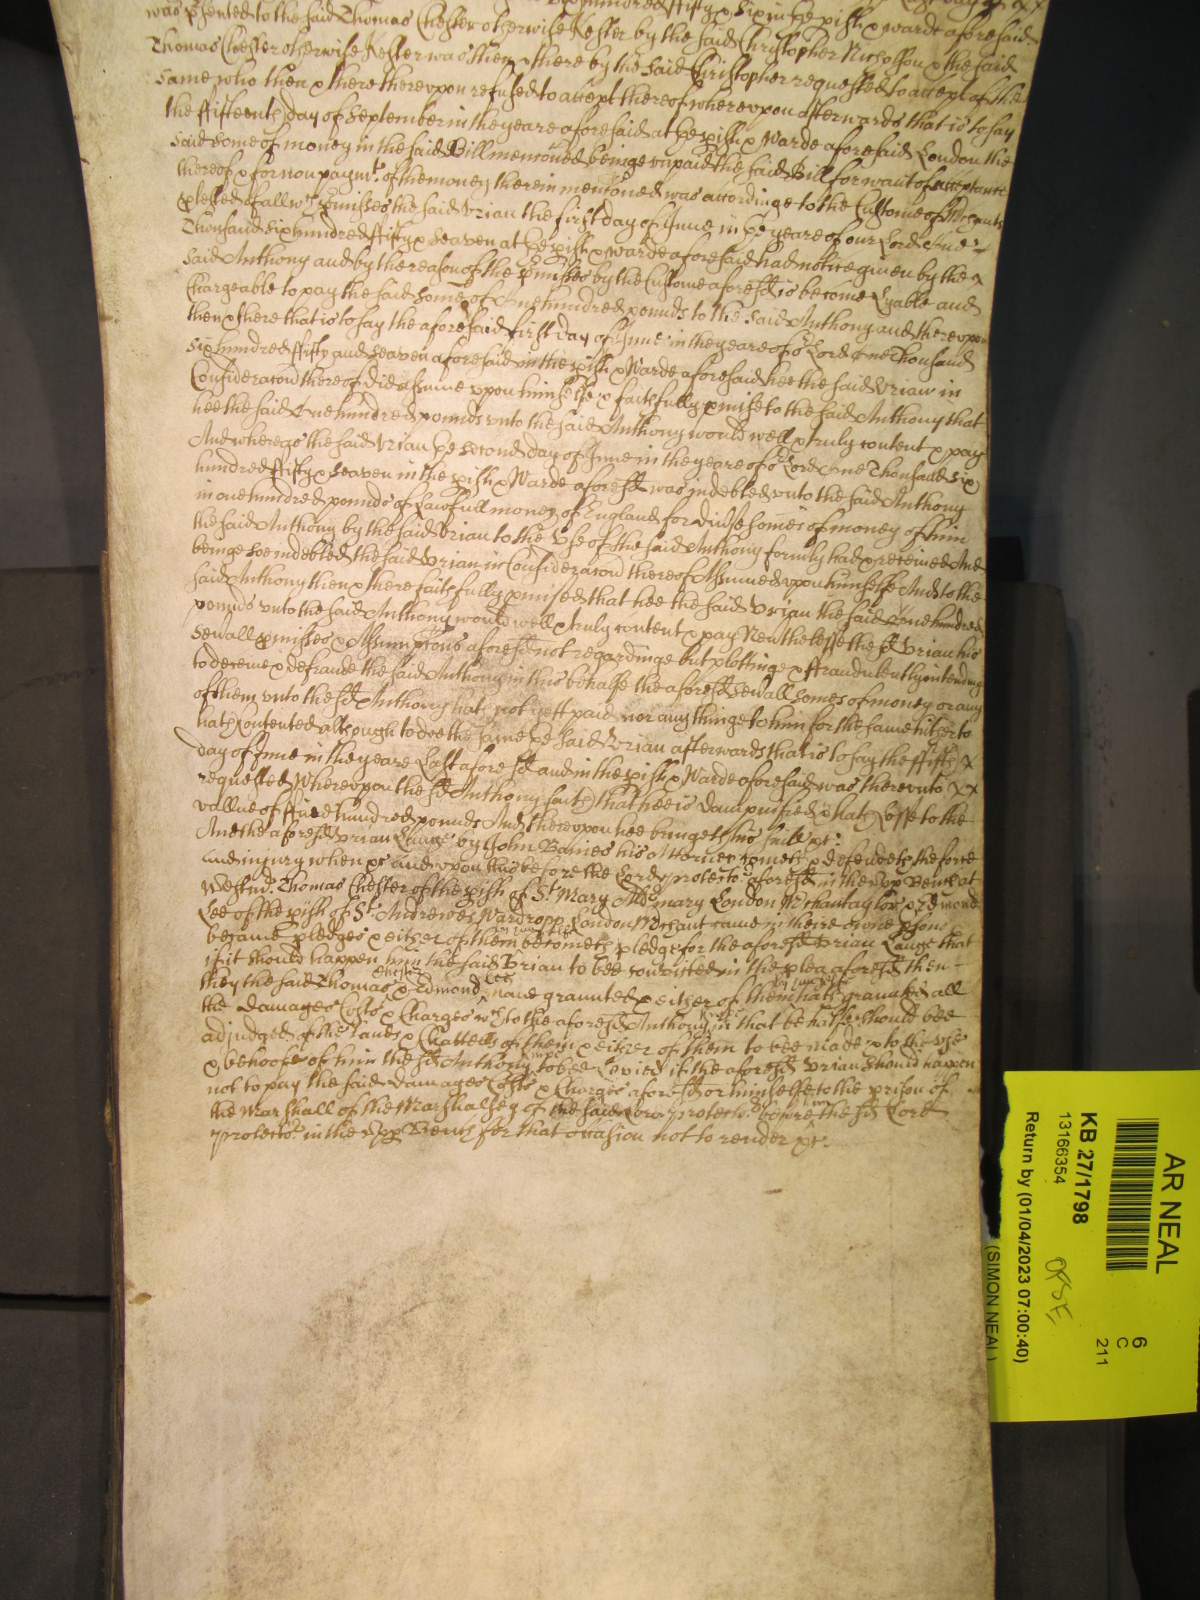 six hundred fifty & six in ye pish & warde aforesaid
was psented to the said Thomas Chester otherwise Kester by the said Christopher Nicholson & the said
Thomas Chester otherwise Kester was then & there by the said Christopher requested to accept of the
same who then & there therevpon refused to accept thereof wherevpon afterwards that is to say
the fifteenth day of September in the yeare aforesaid at ye pish & Warde aforesaid London the
said some of money in the said Bill menconed beinge vnpaid the said Bill for want of acceptance
thereof & for non paymt. of the money therein menconed was accordinge to the Custome of Mrchants
ptested of all wch pmisses the said Vrian the first day of June in ye yeare of our Lord One
Thousand six hundred fifty & seaven at ye pish & warde aforesaid had notice given by the
said Anthony and by the reason of the pmisses by the Custome aforesd is become Lyable and
Chargeable to pay the said some of One hundred pounds to the said Anthony and therevpon
then & there that is to say the aforesaid first day of June in the yeare of or Lord One Thousand
six hundred fifty and seaven aforesaid in the pish & Warde aforesaid hee the said Vrian in
Consideracon thereof did assume vpon himselfe & faithfully pmise to the said Anthony that
hee the said One hundred pounds vnto the said Anthony would well & truly content & pay
And whereas the said Vrian ye second day of June in the yeare of or Lord One Thousand six
hundred fifty & seaven in the pish & Warde aforesd was indebted vnto the said Anthony
in one hundred pounds of Lawfull money of England for divse somes of money of him
the said Anthony by the said Vrian to the vse of the said Anthony formly had & received And
beinge soe indebted the said Vrian in Consideracon thereof Assumed vpon himselfe And to the
said Anthony then & there faithfully pmised that hee the said Vrian the said One hundred
pounds vnto the said Anthony would well & truly content & pay Neuthelesse the sd Vrian his
sevall pmisses & Assumptions aforesd not regardinge but plottinge & fraudulently intending
to deceive & defraude the said Anthony in this behalfe the aforesd sevall somes of money or any
of them vnto the sd Anthony hath not yett paid nor any thinge to him for the same hitherto
hath contented although to doe the same ye said Vrian afterwards that is to say the fifth
day of June in the yeare Last aforesd and in the pish & Warde aforesaid was therevnto
requested Wherevpon the sd Anthony saith that hee is dampnified & hath Losse to the
vallue of five hundred pounds And therevpon hee bringeth his suite &c.
And the aforesd Vrian by John Banies his attorney cometh & defendeth the force
and injury when &c And vpon this before the Lord ptector aforesd in the vpp Bench at
Westmr. Thomas Chester of the pish of St. Mary Aldmary London Mrchantaylor & Edmond
Lee of the pish of St. Andrewes Wardropp London Mrchant came in theire owne psons
became pledges & either of them becometh pledge for the aforesd Vrian that
if it should happen him the said Vrian to bee convicted in the plea aforesd then
they the said Thomas Chester & Edmond Lee have graunted & either of them hath graunted all
the damages Costs & Charges wch to the aforesd Anthony in that behalfe should bee
adjudged of the Lands & Chattells of them & either of them to bee made & to the vse
& behoofe of him the sd Anthony to bee Levied if the aforesd Vrian should happen
not to pay the said damages Costs & Charges aforesd or himselfe to the prison of
the Marshall of the Marshalsey of the said Lord ptector before the sd Lord
ptector in the vpp Bench for that occasion not to render &c.
AR NEAL
6
C
211
KB 27/1798
13166354
OPSF
Return by (01/04/2023 07:00:40)
(SIMON NEAL)